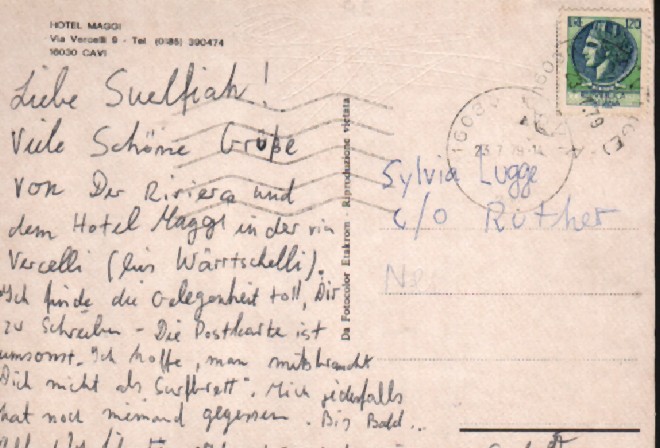 HOTEL MAGGI
Via Vercelli 9 - Tel (0185) 390474
16030 CAVI
Liebe Suelfiah!
Viele Schöne Grüße
von Der Riviera und
dem Hotel Maggi in der via
Vercelli (lies Wärrtschelli).
Ich finde die Gelegenheit toll, Dir
zu Schreiben - Die Postkarte ist
umsonst. Ich hoffe, man missbraucht
Dich nicht als Surfbrett. Mich jedenfalls
hat noch niemand gegessen. Bis Bald..
Da Fotocolor Etakrom - Riproduzione vietata
120
16030
23.7.79-14
(GE)
Sylvia Lugge
c/o Rüther